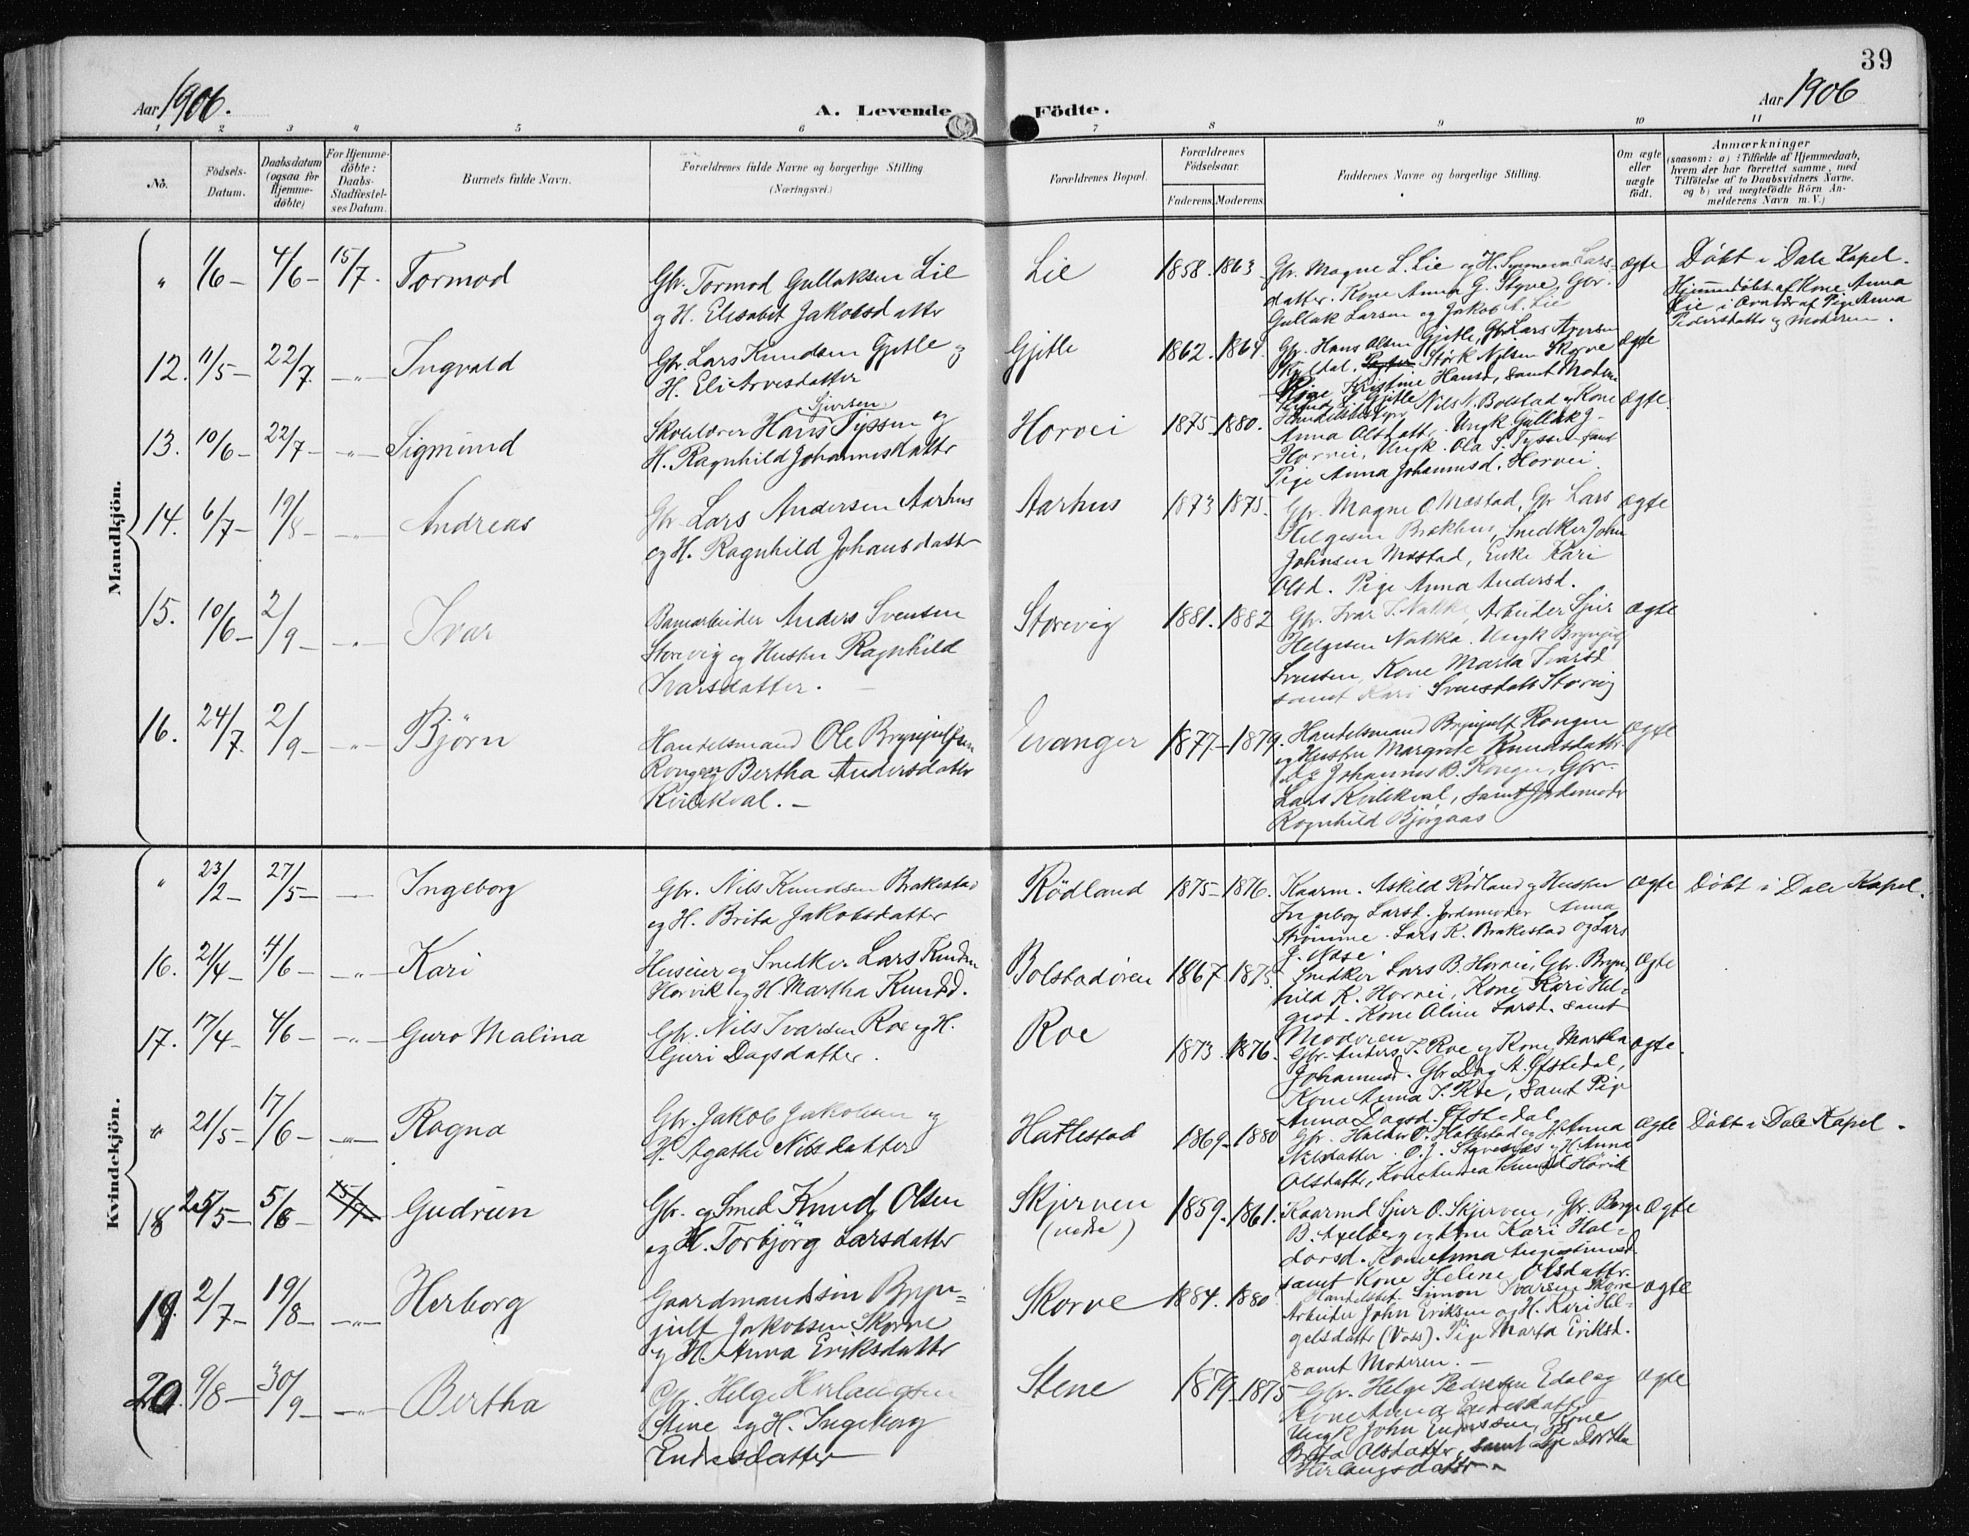 39
Aar 1906.
A. Levende Födte.
Aar 1906
1 2 3 4 5 6 7 8 9 10 11
No.
Födsels-Datum.
Daabsdatum (ogsaa for Hjemme-döbte)
For Hjemme-döbte: Daabs-Stadfæstel-ses Datum.
Barnets fulde Navn.
Forældrenes fulde Navne og borgerlige Stilling (Næringsvei.)
Forældrenes Bopæl.
Forældrenes Födselsaar.
Faderens. Moderens.
Faddernes Navne og borgerlige Stilling.
Om ægte eller uægte födt.
Anmærkninger
(saasom: a) i Tilfælde af Hjemmedaab, hvem der har forrettet samme, med Tilföielse af to Daabsvidners Navne, og b) ved uægtefödte Börn Anmelderens Navn m. V.)
Mandkjön.
" 1/6 4/6 15/7. Tormod
Gbr. Tormod Gullaksen Lie
og H. Elisabet Jakobsdatter
Lie 1858. 1863
Gbr. Magne L. Lie og H. Lars-
datter. Kone Anna G. Styve, Gbr.
Gullak Larsen og Jakob A. Lie
ægte
Döbt i Dale Kapel.
Hjemmedöbt af Kone Anna
Lie i af Pige Anna
Pedersdatter og Moderen.
12. 11/5 22/7 " Ingvald
Gbr. Lars Knudsen Gjetle og
H. Eli Arvesdatter
Gjetle 1862. 1864.
Gbr. Hans Olsen Gjetle, Gbr. Lars
Störk Nilsen Skorve
Pige Kristine Hansd, samt Moder
ægte
13. 10/6 22/7 " Sigmund
Skolelærer Hans Sjursen Tyssen og
H. Ragnhild Johannesdatter
Horvei 1875. 1880.
Nils N. Bolstad og Kone
Anna Olsdatter. Ungk. Gullak J.
Horvei, Ungk. Ola S. Tyssen samt
Pige Anna Johannesd. Horvei
ægte.
14. 6/7 19/8 " Andreas
Gbr. Lars Andersen Aarhus
og H. Ragnhild Johansdatter
Aarhus 1873 1875.
Gbr. Magne O. Mæstad, Gbr. Lars
Helgesen Brækhus, Snedker John
Johnsen Mæstad, Enke Kari
Olsd. Pige Anna Andersd.
ægte
15. 10/6 2/9 " Ivar
Banearbeider Anders Svensen
Storevig og Hustru Ragnhild
Ivarsdatter.
Storevig 1881. 1882
Gbr. Ivar T. Nakka, Arbeider Sjur
Helgesen Nakka. Ungk Brynjulf
Svensen, Kone Marta Ivarsd
samt Kari Svensdatter Storevig
ægte
16. 24/7 2/9 " Björn
Handelsmand Ole Brynjulfsen
Rongen og Bertha Andersdatter
Kvilekval.
Evanger 1877 1879.
Handelsmand Brynjulf Rongen
og Hustru Margrete Knudsdatter
Johannes B. Rongen, Gbr.
Lars Kvilekval, samt Jordemoder
Ragnhild Björgaas
ægte
Kvindekjön.
" 23/2 27/5 Ingeborg
Gbr. Nils Knudsen Brakestad
og H. Brita Jakobsdatter
Rödland 1875 1876.
Kaarm. Askild Rödland og Hustru
Ingeborg Larsd. Jordemoder Anna
Strömme. Lars K. Brakestad og Lars
J. Nase.
ægte
Döbt i Dale Kapel.
16. 21/4 4/6 " Kari
Huseier og Snedker Lars Knudsen
Horvik og H. Martha Knudsd.
Bolstadören 1867 1875.
Snedker Lars B. Horvei, Gbr. Bryn-
hild K. Horvei, Kone Kari Hel-
gesd. Kone Aline Larsd. samt
Moderen
ægte
17. 17/4 4/6 " Guro Malina
Gbr. Nils Ivarsen Roe og H.
Guri Dagsdatter.
Roe 1873. 1876.
Gbr. Anders T. Roe og Kone Martha
Johannesd. Gbr Dag A. Öfstedal,
Kone Anna I. Roe, samt Pige
Anna Dagsd. Öfstedal
ægte.
" 21/5 17/6 " Ragna
Gbr. Jakob Jakobsen og
H. Agathe Nilsdatter
Hatlestad 1869 1880
Gbr. Halder O. Hatlestad og H. Anna
Nilsdatter. O. J. Stavenæs og H. Anna
Olsdatter, Kone Anna Knudsd Hörvik
ægte
Döbt i Dale Kapel.
18 25/5 5/8 15/7 Gudrun
Gbr. og Smed Knud Olsen
og H. Torbjörg Larsdatter
Skjerven
(nedre)
1859. 1861.
Kaarmd Sjur O. Skjerven, Gbr. Börge
B. Axelberg og Kone Kari Hal-
dorsd. Kone Anna
samt Kone Helene Olsdatter.
ægte
19. 2/7 19/8 " Herborg
Gaardmandssön Bryn-
julf Jakobsen Skorve
og H. Anna Eriksdatter
Skorve 1884. 1880
Handelsbet. Simon Ivarsen Skorve
Arbeider John Eriksen og H. Kari Hel-
gesdatter (Voss). Pige Marta Eriksd.
samt Moderen.
ægte
20. 9/8 30/9 " Bertha
Gbr. Helge Herlaugsen
Stene og H. Ingeborg
Endesdatter
Stene 1879 1875
Gbr. Helge Pedersen Edal og
Kone Anna Endesdatter
Ungk John Endresen, Kone
Brita Olsdatter, samt Pige Dorthea
Herlaugsdatter.
ægte